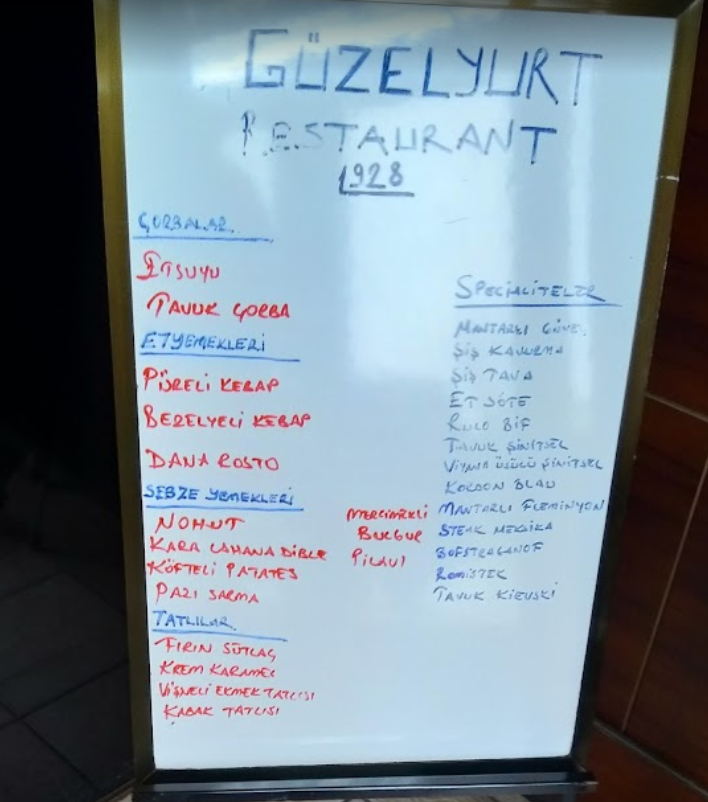 GÜZELYURT
RESTAURANT
1928
ÇORBALAR
ETSUYU
TAVUK ÇORBA
ETYEMEKLERİ
PÜRELİ KEBAP
BEZELYELİ KEBAP
DANA ROSTO
SEBZE YEMEKLERİ
NOHUT
KARA LAHANA DİBLE
KÖFTELİ PATATES
PAZI SARMA
TATLILAR
FIRIN SÜTLAÇ
KREM KARAMEL
VİŞNELİ EKMEK TATLISI
KABAK TATLISI
MERCİMEKLİ
BULGUR
PİLAVI
SPECİALİTELER
MANTARLI GÜVEÇ
ŞİŞ KAVURMA
ŞİŞ TAVA
ET SOTE
RULO BİF
TAVUK ŞİNİTSEL
VİYANA ÜSÜLÜ ŞİNİTSEL
KORDON BLAU
MANTARLI FLEMİNYON
STEAK MEKSİKA
BOFSTRAGANOF
ROMİSTEK
TAVUK KİEVSKİ